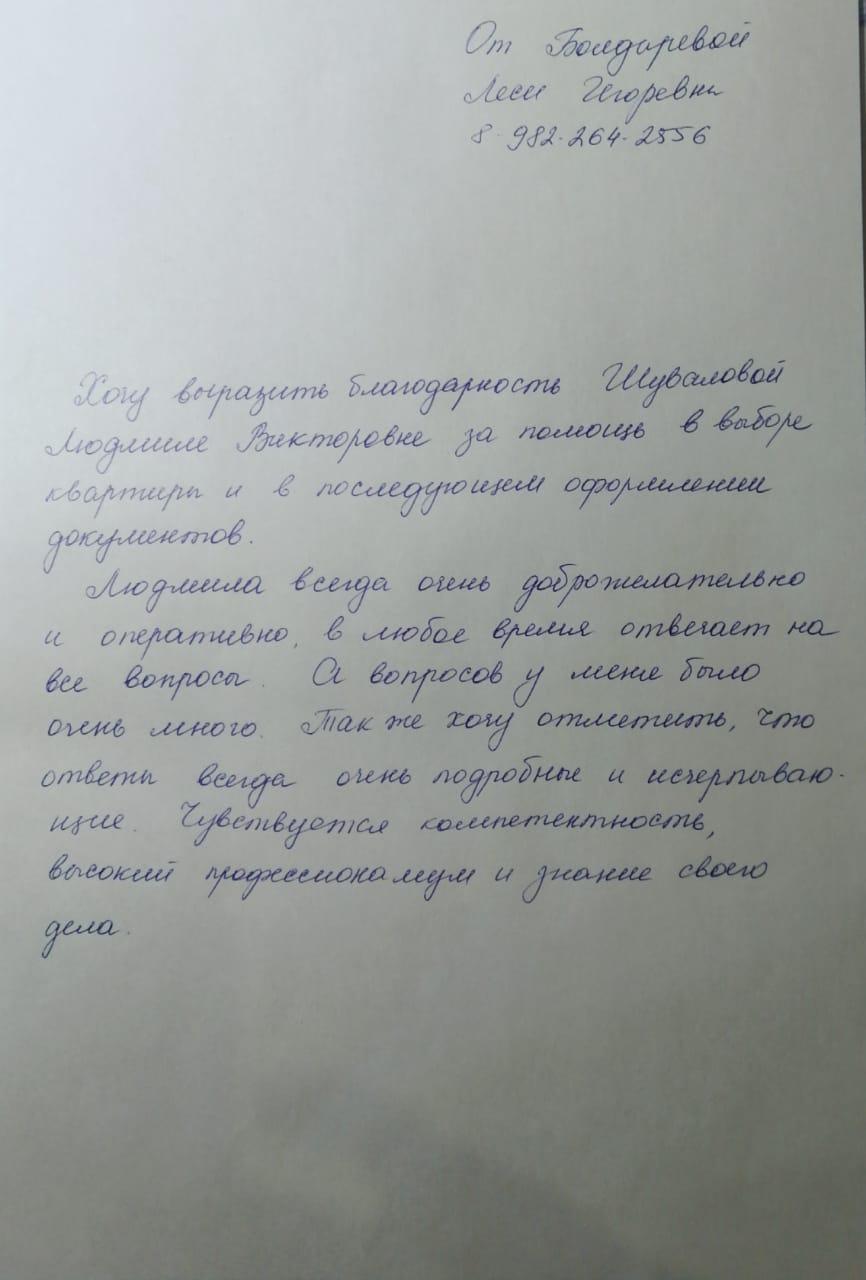 От Болдыревой
Леси Игоревны
8-982-264-2556
Хочу выразить благодарность Шуваловой
Людмиле Викторовне за помощь в выборе
квартиры и в последующем оформлении
документов.
Людмила всегда очень доброжелательно
и оперативно, в любое время отвечает на
все вопросы. А вопросов у меня было
очень много. Так же хочу отметить, что
ответы всегда очень подробные и исчерпываю-
щие. Чувствуется компетентность,
высокий профессионализм и знание своего
дела.